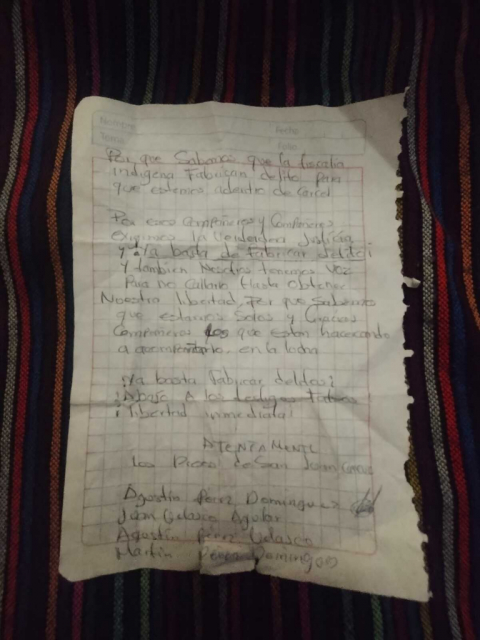 Nombre Fecha
Tema Folio
Por que Sabemos que la fiscalia
indigena Fabrican delito para
que estemos adentro de carcel
Por eso Compañeros y Compañeras
Exigimos la Verdadera Justicia
y ¡Ya basta de Fabricar delito¡
Y tambien Nosotros tenemos Voz
Para no Callarlo Hasta Obtener
Nuestra libertad, Por que Sabemos
que estamos Solos y Gracias
Compañeros los que estan haceiendo
a acompañarlo, en la lucha
¡Ya basta Fabricar delitos¡
¡Abajo A los
¡libertad inmediata!
ATENTAMENTE
Los Presos de San Juan
Agustin Perez Domingu
Juan Velasco Aguilar
Agustin Perez Velasco
Martin Perez Domingo